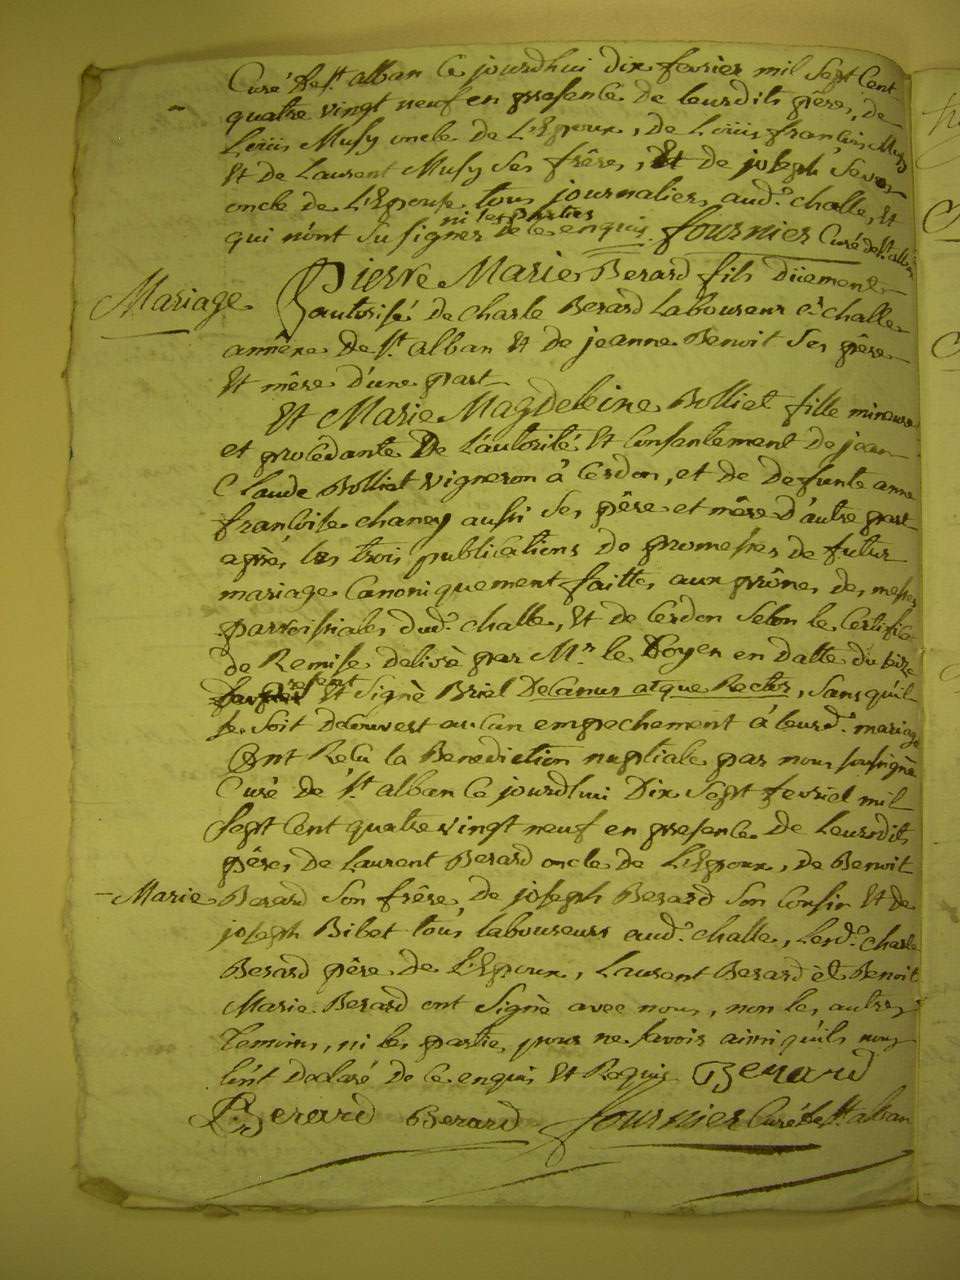 Curé de St. alban Ce jourdhui dix fevrier mil Sept Cent
quatre vingt neuf en presence de leurdits pêres, de
Loüis Musy oncle de L'Epoux, de Loüis françois Musy
Et de Laurent Musy Ses frêres, Et de joseph
oncle de L'Epouse tous journaliers aud.° challe, Et
qui n'ont Su signer ni les parties de ce enquis. fournier Curé de St. alban
Mariage
Pierre Marie Berard fils düement
autorisé de Charle Berard Laboureur à challe
annêxe de St. alban Et de jeanne Benoit Ses pêre
Et mêre d'une part
Et Marie Magdeleine Bolliet fille mineure
et procédante De L'autorité Et Consentement de jean
Claude Bolliet vigneron à Cerdon, et de defunte anne
francoise chaney aussi Ses pêre et mêre d'autre part
aprês les trois publications de promesses de futur
mariage Canoniquement faittes aux prônes des messes
parroissiales dud.° challe, Et de Cerdon Selon le Certificat
de Remise delivré par Mr. le Doyen en datte du seize
present Et Signé Briel Decanus atque Rector, Sans qu'il
se soit decouvert aucun empechement à leurd.° mariage
Ont Recu la Benediction nuptiale par nous soussigné
Curé de St. alban Ce jourdhui Dix Sept fevrier mil
Sept Cent quatre vingt neuf en presence de Leursdits
pêres, de Laurent Berard oncle de L'Epoux, de Benoit
- Marie Berard Son frêre, de joseph Berard Son Cousin Et de
joseph Bibet tous laboureurs aud.° challe, Led.° Charle
Berard pêre de L'Epoux, Laurent Berard Et Benoit
Marie Berard ont Signé avec nous, non les autres
temoins, ni les parties pour ne savoir ainsi qu'ils nous
l'ont declaré de ce enquis Et Requis Berard
Berard Berard fournier Curé de St. alban